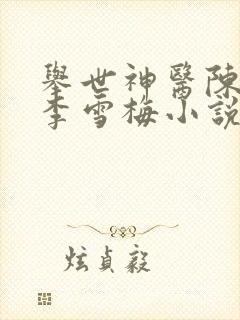 舉世神醫陳
李雪梅小說
炫貞毅